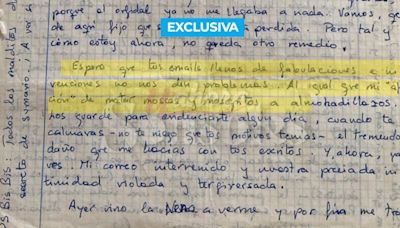 porque el orfidal ya no me llegaba a nada. Vamos, ge
de agri fijo que perdida. Pero tal y
cómo estoy ahora, no queda otro remedio.
EXCLUSIVA
Espero que tus emails llenos de fabulaciones e in
venciones no nos den problemas. Al igual que mi "af
ción" de matar moscas y mosquitos a almohadillazos.
nos guarde para endiñarte algún día, cuando ta
calumnias - no te niego que tus motivos tenías - el tremendo
daño que me hacías con tus escritos. Y, ahora, ya
ves: Mi correo intervenido y nuestra preciada in
timidad violada y tergiversada.
Ayer vino la Nena a verme y por fin me tra
OS Bis Bis: Todos los malditos d
secreto de sumario. ¡A ver